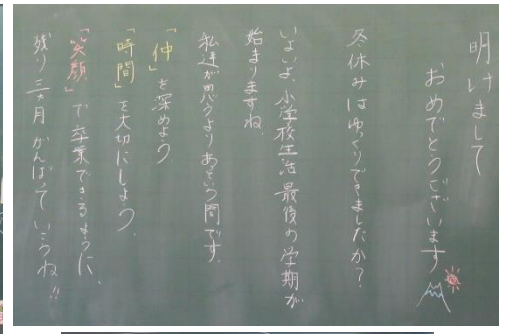 明けまして
おめでとうございます
冬休みはゆっくりできましたか?
いよいよ、小学校生活最後の学期が
始まりますね。
私達が思うよりあっという間です。
「仲」を深めよう
「時間」を大切にしよう。
「笑顔」で卒業できるように、
残り三ヵ月がんばっていこうね!!